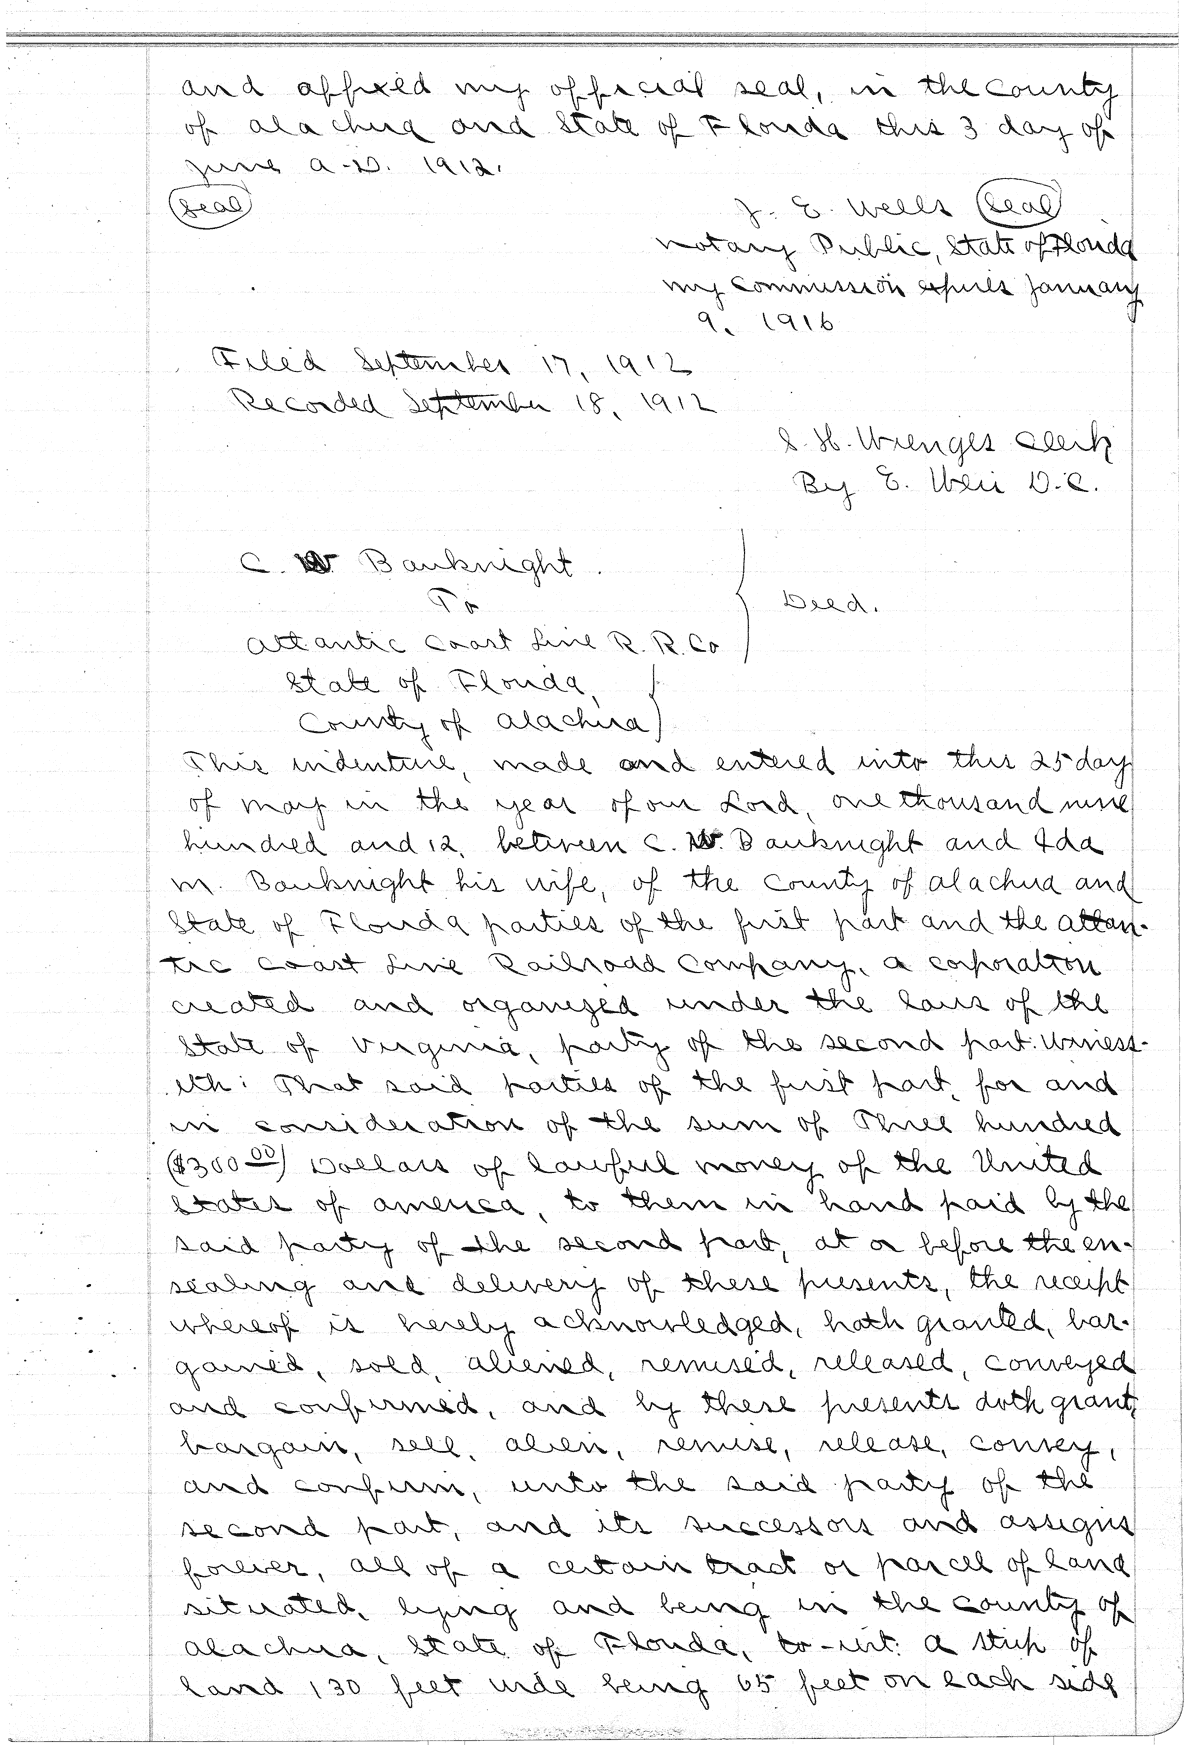 and affixed my official seal, in the county
of Alachua and State of Florida this 3 day of
June A.D. 1912.
Seal
J. E. Wells Seal
Notary Public, State of Florida
my Commission expires January
9, 1916
Filed September 17, 1912
Recorded September 18, 1912
S. H. Wienges Clerk
By E. Weir D.C.
C. W Bauknight.
To
Deed.
Atlantic Coast Line R. R. Co
State of Florida,
County of Alachua
This indenture, made and entered into this 25 day
of May in the year of our Lord, one thousand nine
hundred and 12, between C. W. Bauknight and Ida
M. Bauknight his wife, of the County of Alachua and
State of Florida parties of the first part and the Atlan-
tic Coast Line Railroad Company, a corporation
created and organized under the laws of the
State of Virginia, party of the second part: Witness-
eth: That said parties of the first part, for and
in consideration of the sum of Three hundred
($300.00) Dollars of lawful money of the United
States of America, to them in hand paid by the
said party of the second part, at or before the en-
sealing and delivery of these presents, the receipt
whereof is hereby acknowledged, hath granted, bar-
gained, sold, aliened, remised, released, conveyed
and confirmed, and by these presents doth grant,
bargain, sell, alien, remise, release, convey,
and confirm, unto the said party of the
second part, and its successors and assigns
forever, all of a certain tract or parcel of land
situated, lying and being in the county of
Alachua, State of Florida, to-wit: A strip of
land 130 feet wide being 65 feet on each side